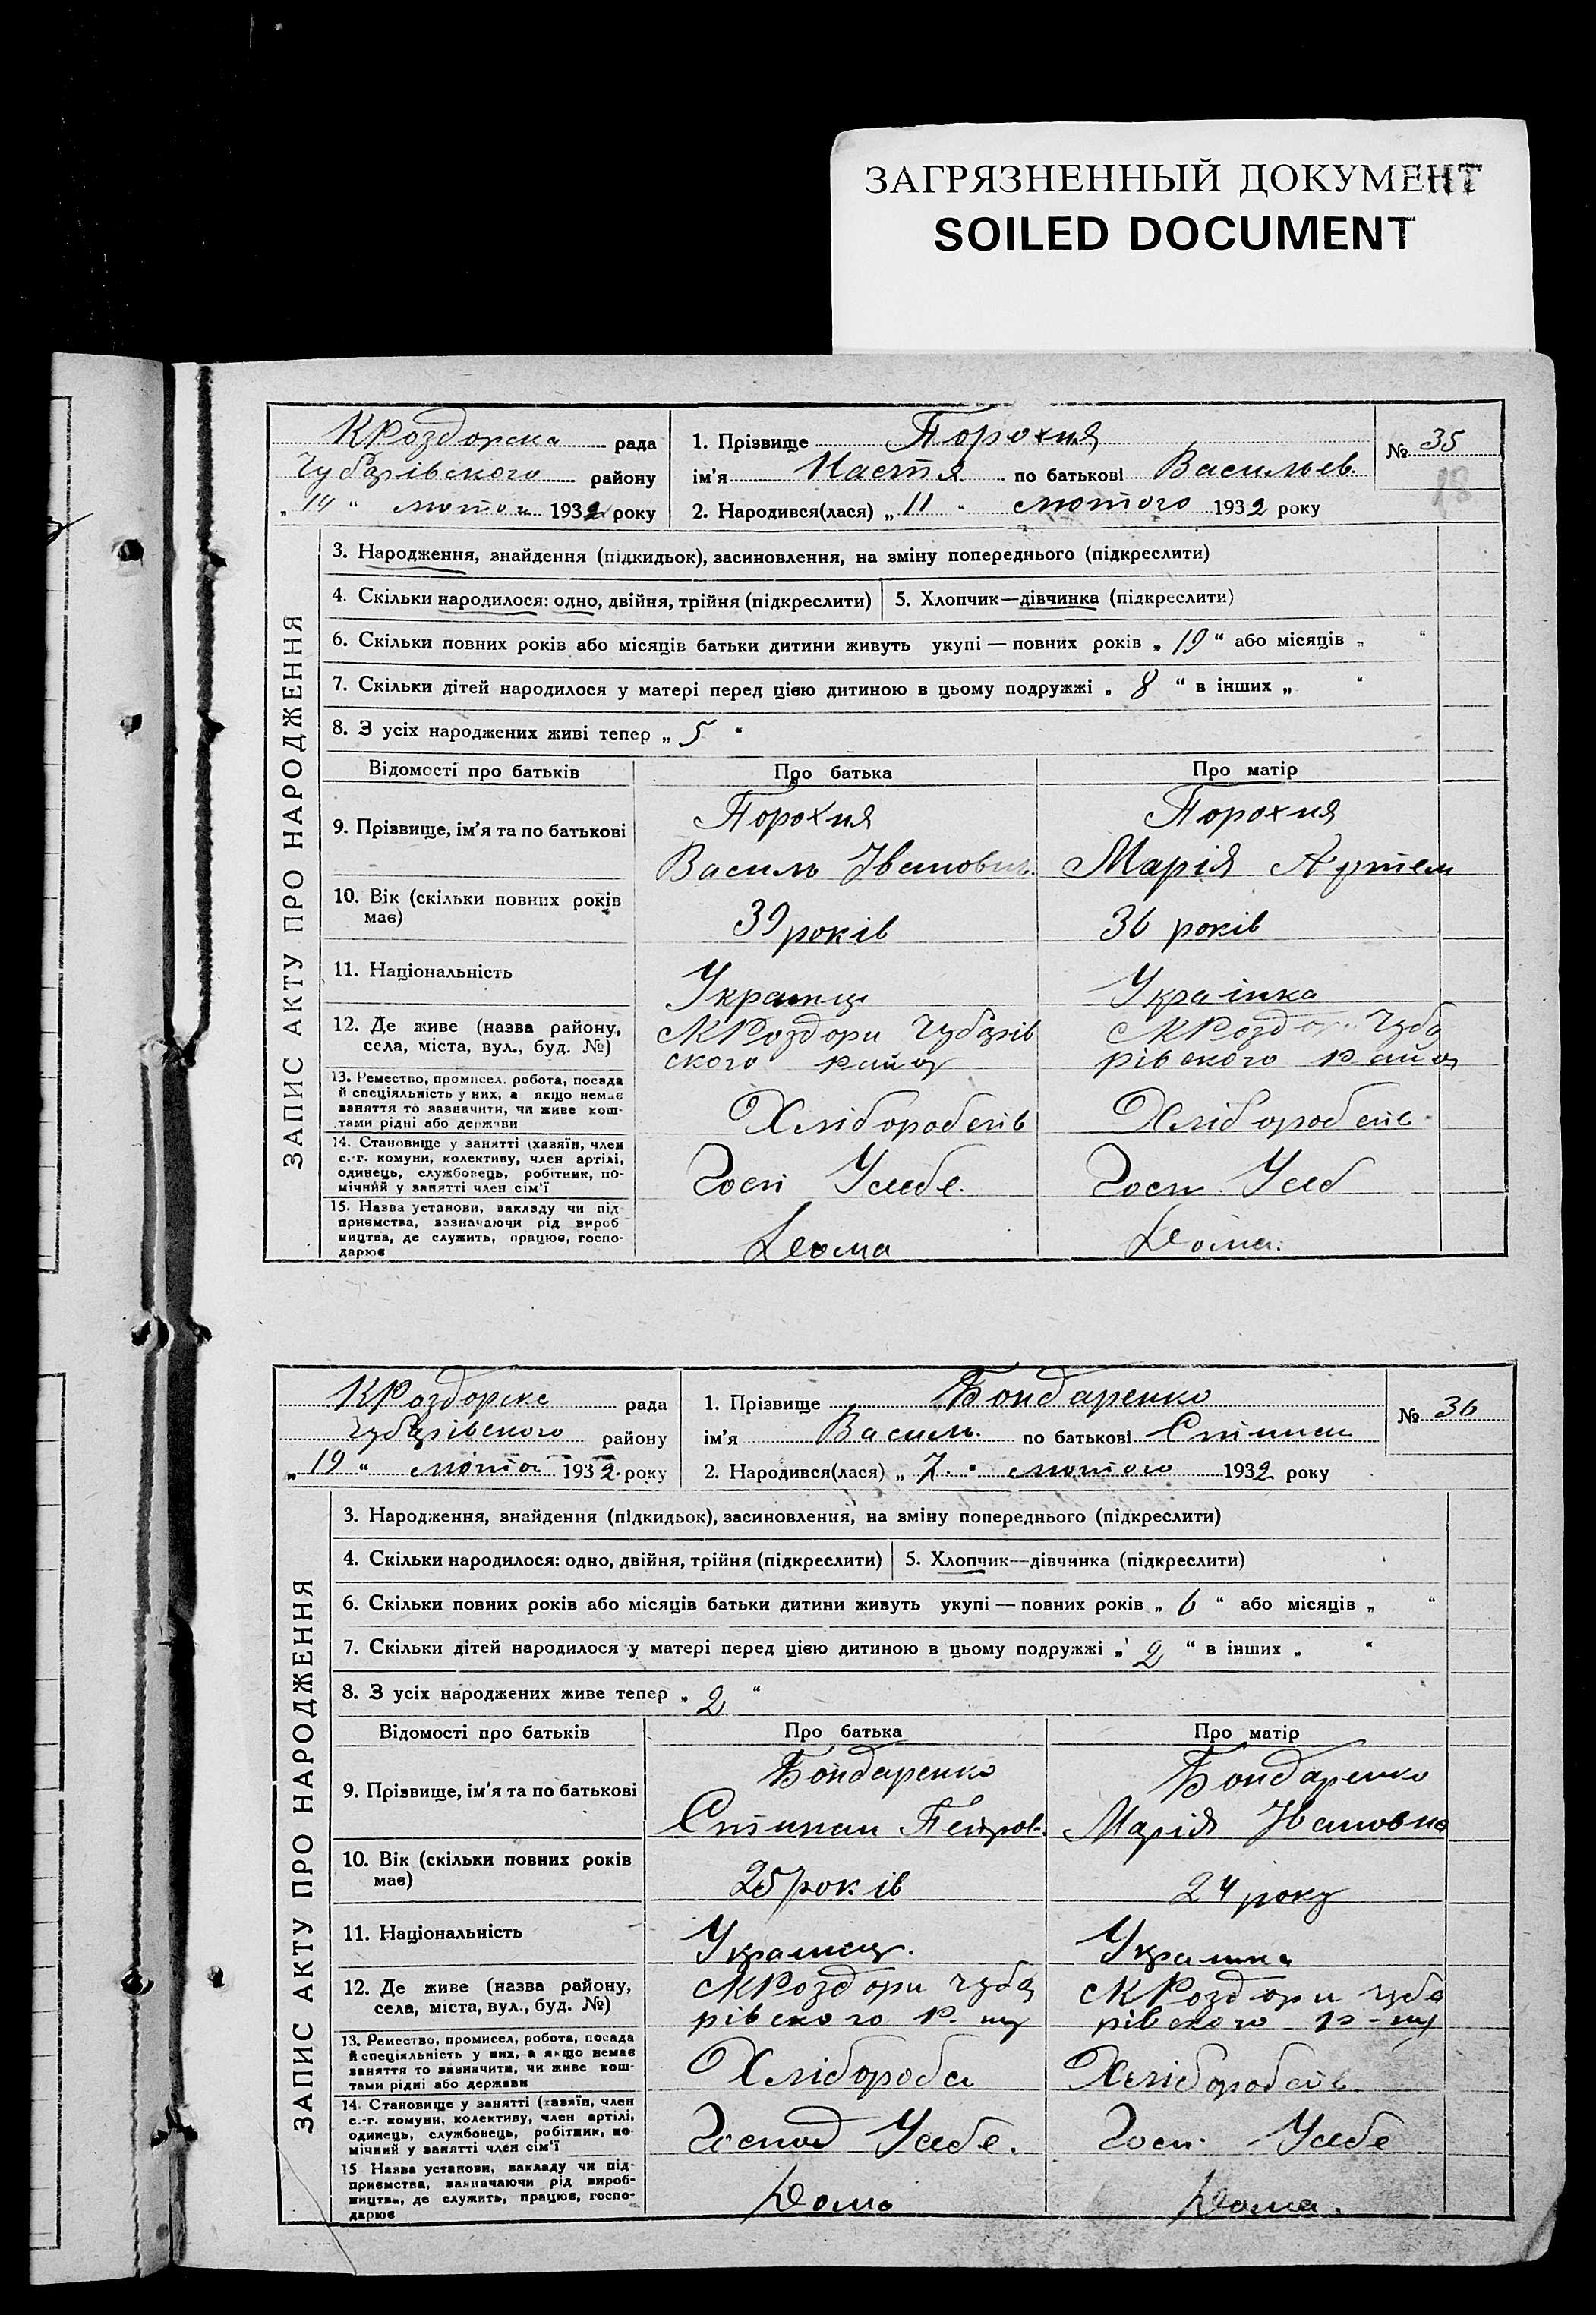 ЗАГРЯЗНЕННЫЙ ДОКУМЕНТ
SOILED DOCUMENT
КРоздорска рада
Чубарівського району
1932 року
1. Прізвище Порохня
ім'я Настя по батькові Васильев.
2. Народився(лася) „ 11 " лютого 1932 року
№ 35
18
ЗАПИС АКТУ ПРО НАРОДЖЕННЯ
3. Народження, знайдення (підкидьок), засиновлення, на зміну попереднього (підкреслити)
4. Скільки народилося: одно, двійня, трійня (підкреслити) 5. Хлопчик—дівчинка (підкреслити)
6. Скільки повних років або місяців батьки дитини живуть укупі — повних років „ 19 “ або місяців „ “
7. Скільки дітей народилося у матері перед цією дитиною в цьому подружжі „ 8 “ в інших „ “
8. З усіх народжених живі тепер „ 5 “
Відомості про батьків Про батька Про матір
9. Прізвище, ім'я та по батькові
Порохня
Василь Іванович
Порохня
Марія Артем
10. Вік (скільки повних років має)
39 років
36 років
11. Національність
Українець
Українка
12. Де живе (назва району,
села, міста, вул., буд. №)
с КРоздори Чубарів
ского району
с КРоздори Чуба
рівского району
13. Ремество, промисел, робота, посада
й спеціяльність у них, а якщо немає
заняття то зазначити, чи живе кош-
тами рідні або держави
Хліборобств
Хліборобств
14. Становище у занятті (хазяїн, член
с.-г. комуни, колективу, член артілі,
одинець, службовець, робітник, по-
мічний у занятті член сім'ї
Госп Усебе.
Госп. Усеб
15. Назва установи, закладу чи під-
приємства, зазначаючи рід вироб
ництва, де служить, працює, госпо-
дарює
Дома
Дома.
КРоздорске рада
Чубарівского району
„ 19 “ лютого 1932 року
1. Прізвище Бондаренко
ім'я Василь. по батькові Степан
2. Народився(лася) „ 7. " лютого 1932 року
№ 36
ЗАПИС АКТУ ПРО НАРОДЖЕННЯ
3. Народження, знайдення (підкидьок), засиновлення, на зміну попереднього (підкреслити)
4. Скільки народилося: одно, двійня, трійня (підкреслити) 5. Хлопчик—дівчинка (підкреслити)
6. Скільки повних років або місяців батьки дитини живуть укупі — повних років „ 6 “ або місяців „ “
7. Скільки дітей народилося у матері перед цією дитиною в цьому подружжі „ 2 “ в інших „ “
8. З усіх народжених живе тепер „ 2 “
Відомості про батьків Про батька Про матір
9. Прізвище, ім'я та по батькові
Бондаренко
Степан Петров.
Бондаренко
Марія Івановна
10. Вік (скільки повних років
має)
25 років
24 року
11. Національність
Украінец.
Украінка
12. Де живе (назва району,
села, міста, вул., буд. №)
с КРоздори Чуба
рівского р-ну
с КРоздори Чуба
рівского р-ну
13. Ремество, промисел, робота, посада
й спеціяльність у них, а якщо немає
заняття то зазначити, чи живе кош-
тами рідні або держави
Хлібороба
Хліборобств.
14. Становище у занятті (хазяїн, член
с.-г. комуни, колективу, член артілі,
одинець, службовець, робітник, по-
мічний у занятті член сім'ї
Господ Усебе.
Госп. Усебе
15 Назва установи, закладу чи під-
приємства, зазначаючи рід вироб-
ництва, де служить, працює, госпо-
дарює
Дома
Дома.